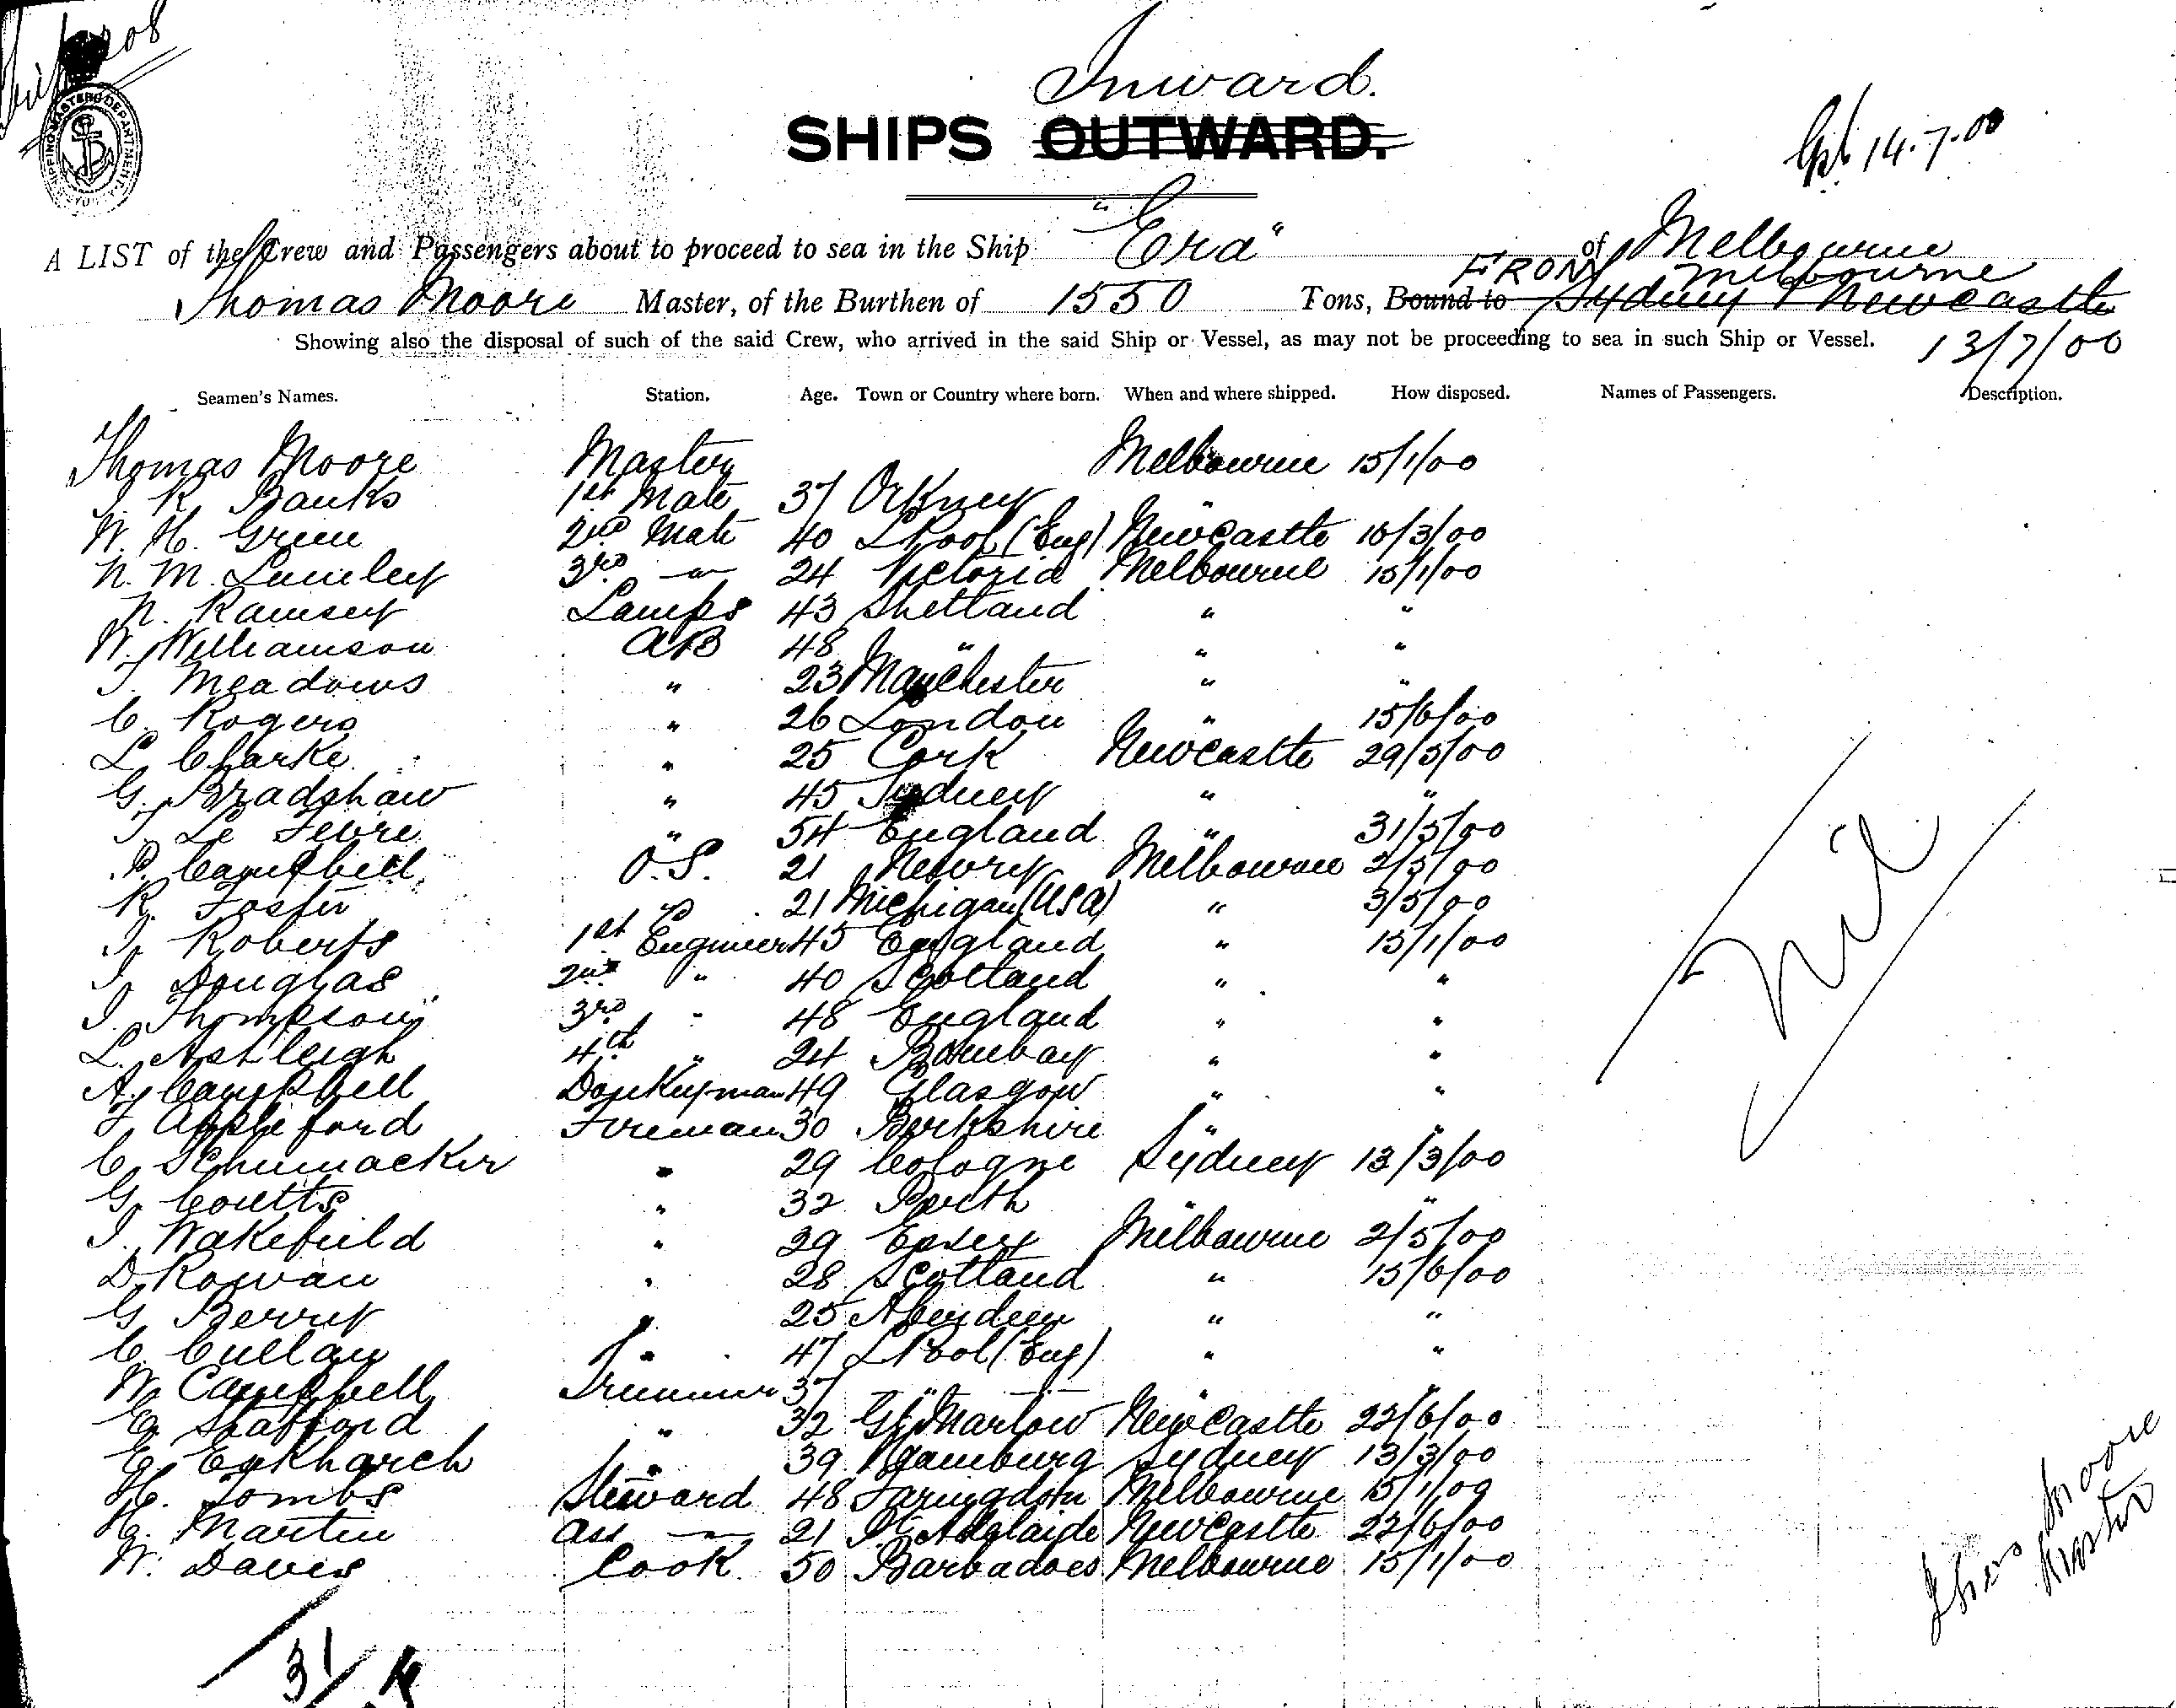 Inward.
SHIPS OUTWARD.
14.7.00
A LIST of the Crew and Passengers about to proceed to sea in the Ship "Era" of Melbourne
FROM Melbourne
Thomas Moore Master, of the Burthen of 1550 Tons, Bound to Sydney & Newcastle
Showing also the disposal of such of the said Crew, who arrived in the said Ship or Vessel, as may not be proceeding to sea in such Ship or Vessel. 13/7/00
Seamen's Names. Station. Age. Town or Country where born. When and where shipped. How disposed. Names of Passengers. Description.
Thomas Moore Master Melbourne 15/1/00
J. R. Banks 1st Mate 37 Orkney "
W. H. Green 2nd Mate 40 LPool (Eng) Newcastle 10/3/00
N. M. Lumley 3rd " 24 Victoria Melbourne 15/1/00
N. Ramsey Lamps 43 Shetland " "
W. Williamson AB 48 " " "
J. Meadows " 23 Manchester " "
C. Rogers " 26 London " 15/6/00
L. Clarke " 25 Cork Newcastle 29/5/00
G. Bradshaw " 45 Sydney " "
J. Le Febre " 54 England " 31/5/00
P. Campbell O.S. 21 Newry Melbourne 2/5/00
R. Foster " 21 Michigan (USA) " 3/5/00
J. Roberts 1st Engineer 45 England " 15/1/00
J. Douglas 2nd " 40 Scotland " "
J. Thompson 3rd " 48 England " "
L. Ashleigh 4th " 24 Bombay " "
A. Campbell Donkeyman 49 Glasgow " "
F. Appleford Fireman 30 Berkshire " "
C. Schumacker " 29 Cologne Sydney 13/3/00
G. Coutts " 32 Perth " "
J. Wakefield " 29 Essex Melbourne 2/5/00
D. Rowan " 28 Scotland " 15/6/00
G. Berry " 25 Aberdeen " "
C. Cullan " 47 LPool (Eng) " "
W. Campbell Trimmer 37 " " "
E. Stafford " 32 Gt Marlow Newcastle 22/6/00
E. Enkharch " 39 Hamburg Sydney 13/3/00
H. Tombs Steward 48 Faringdon Melbourne 15/1/00
H. Martin Ass " 21 Pt Adelaide Newcastle 22/6/00
W. Davis Cook 50 Barbadoes Melbourne 15/1/00
Nil
Thos Moore
Master
31